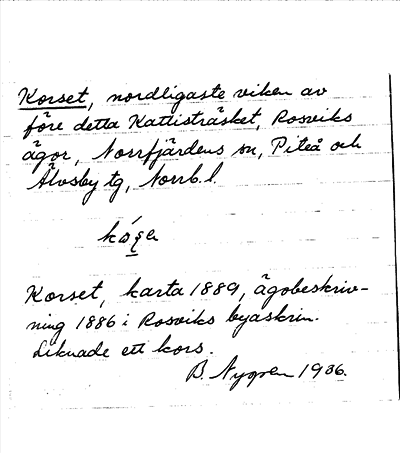 Korset, nordligaste viken av
före detta Kattisträsket, Rosviks
ägor, Norrfjärdens sn, Piteå och
Älvsby tg, Norrb. l.
Korset, karta 1889, ägobeskriv-
ning 1886 i Rosviks byaskrin.
Liknade ett kors.
B. Nygren 1936.